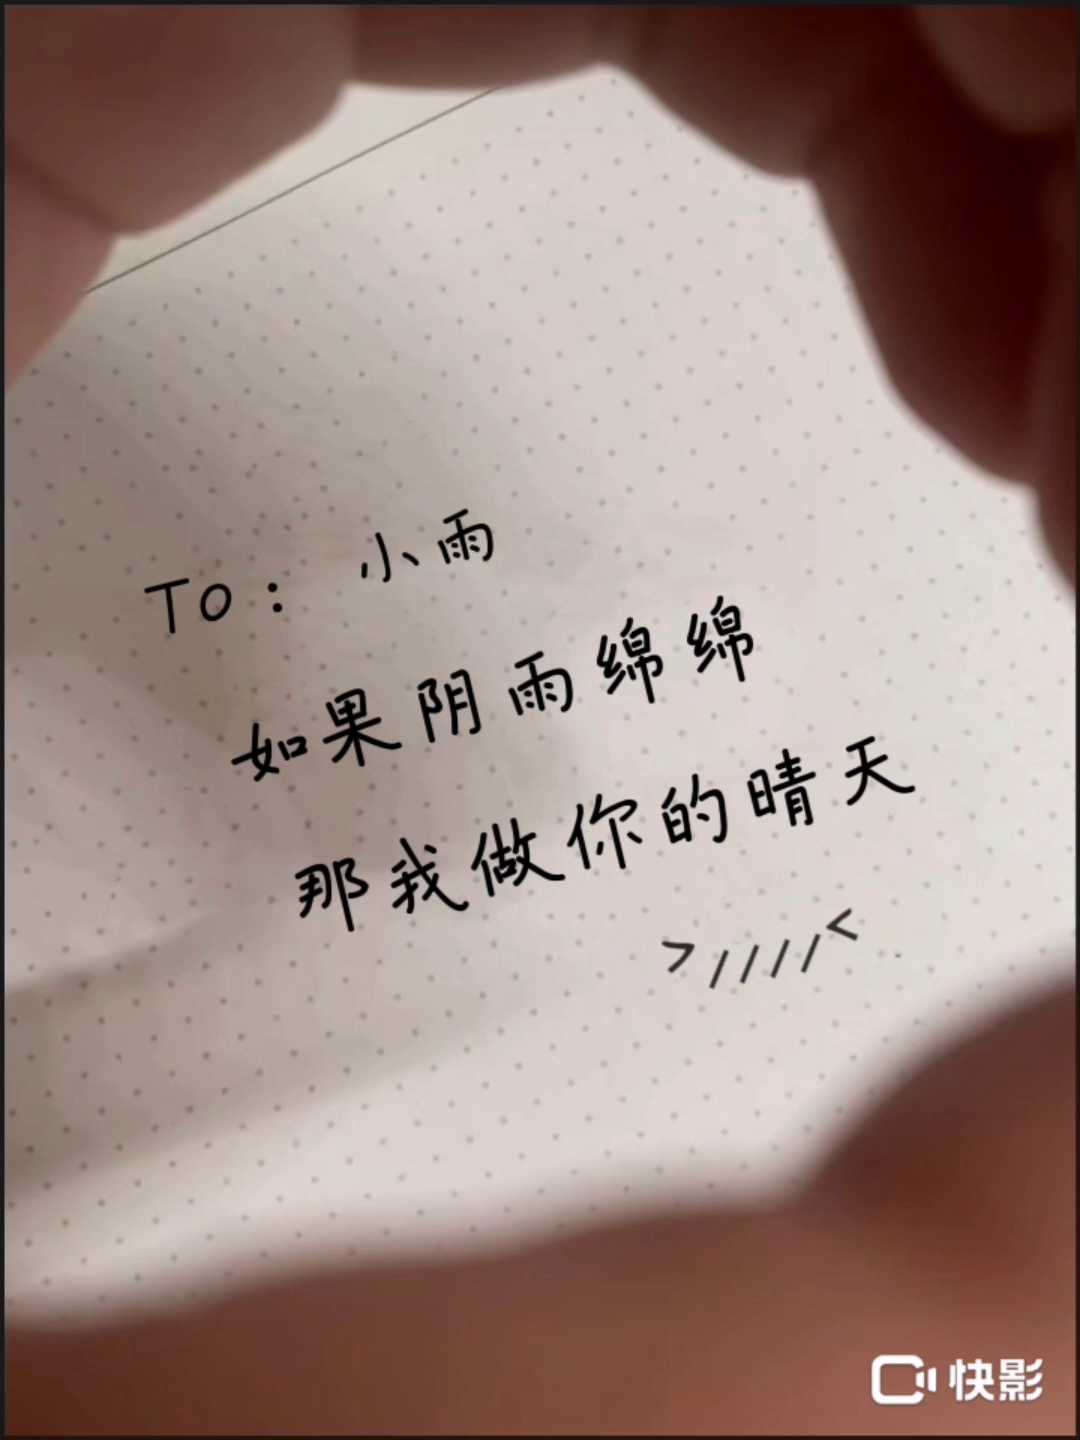 TO： 小雨
如果阴雨绵绵
那我做你的晴天
>////<
快影